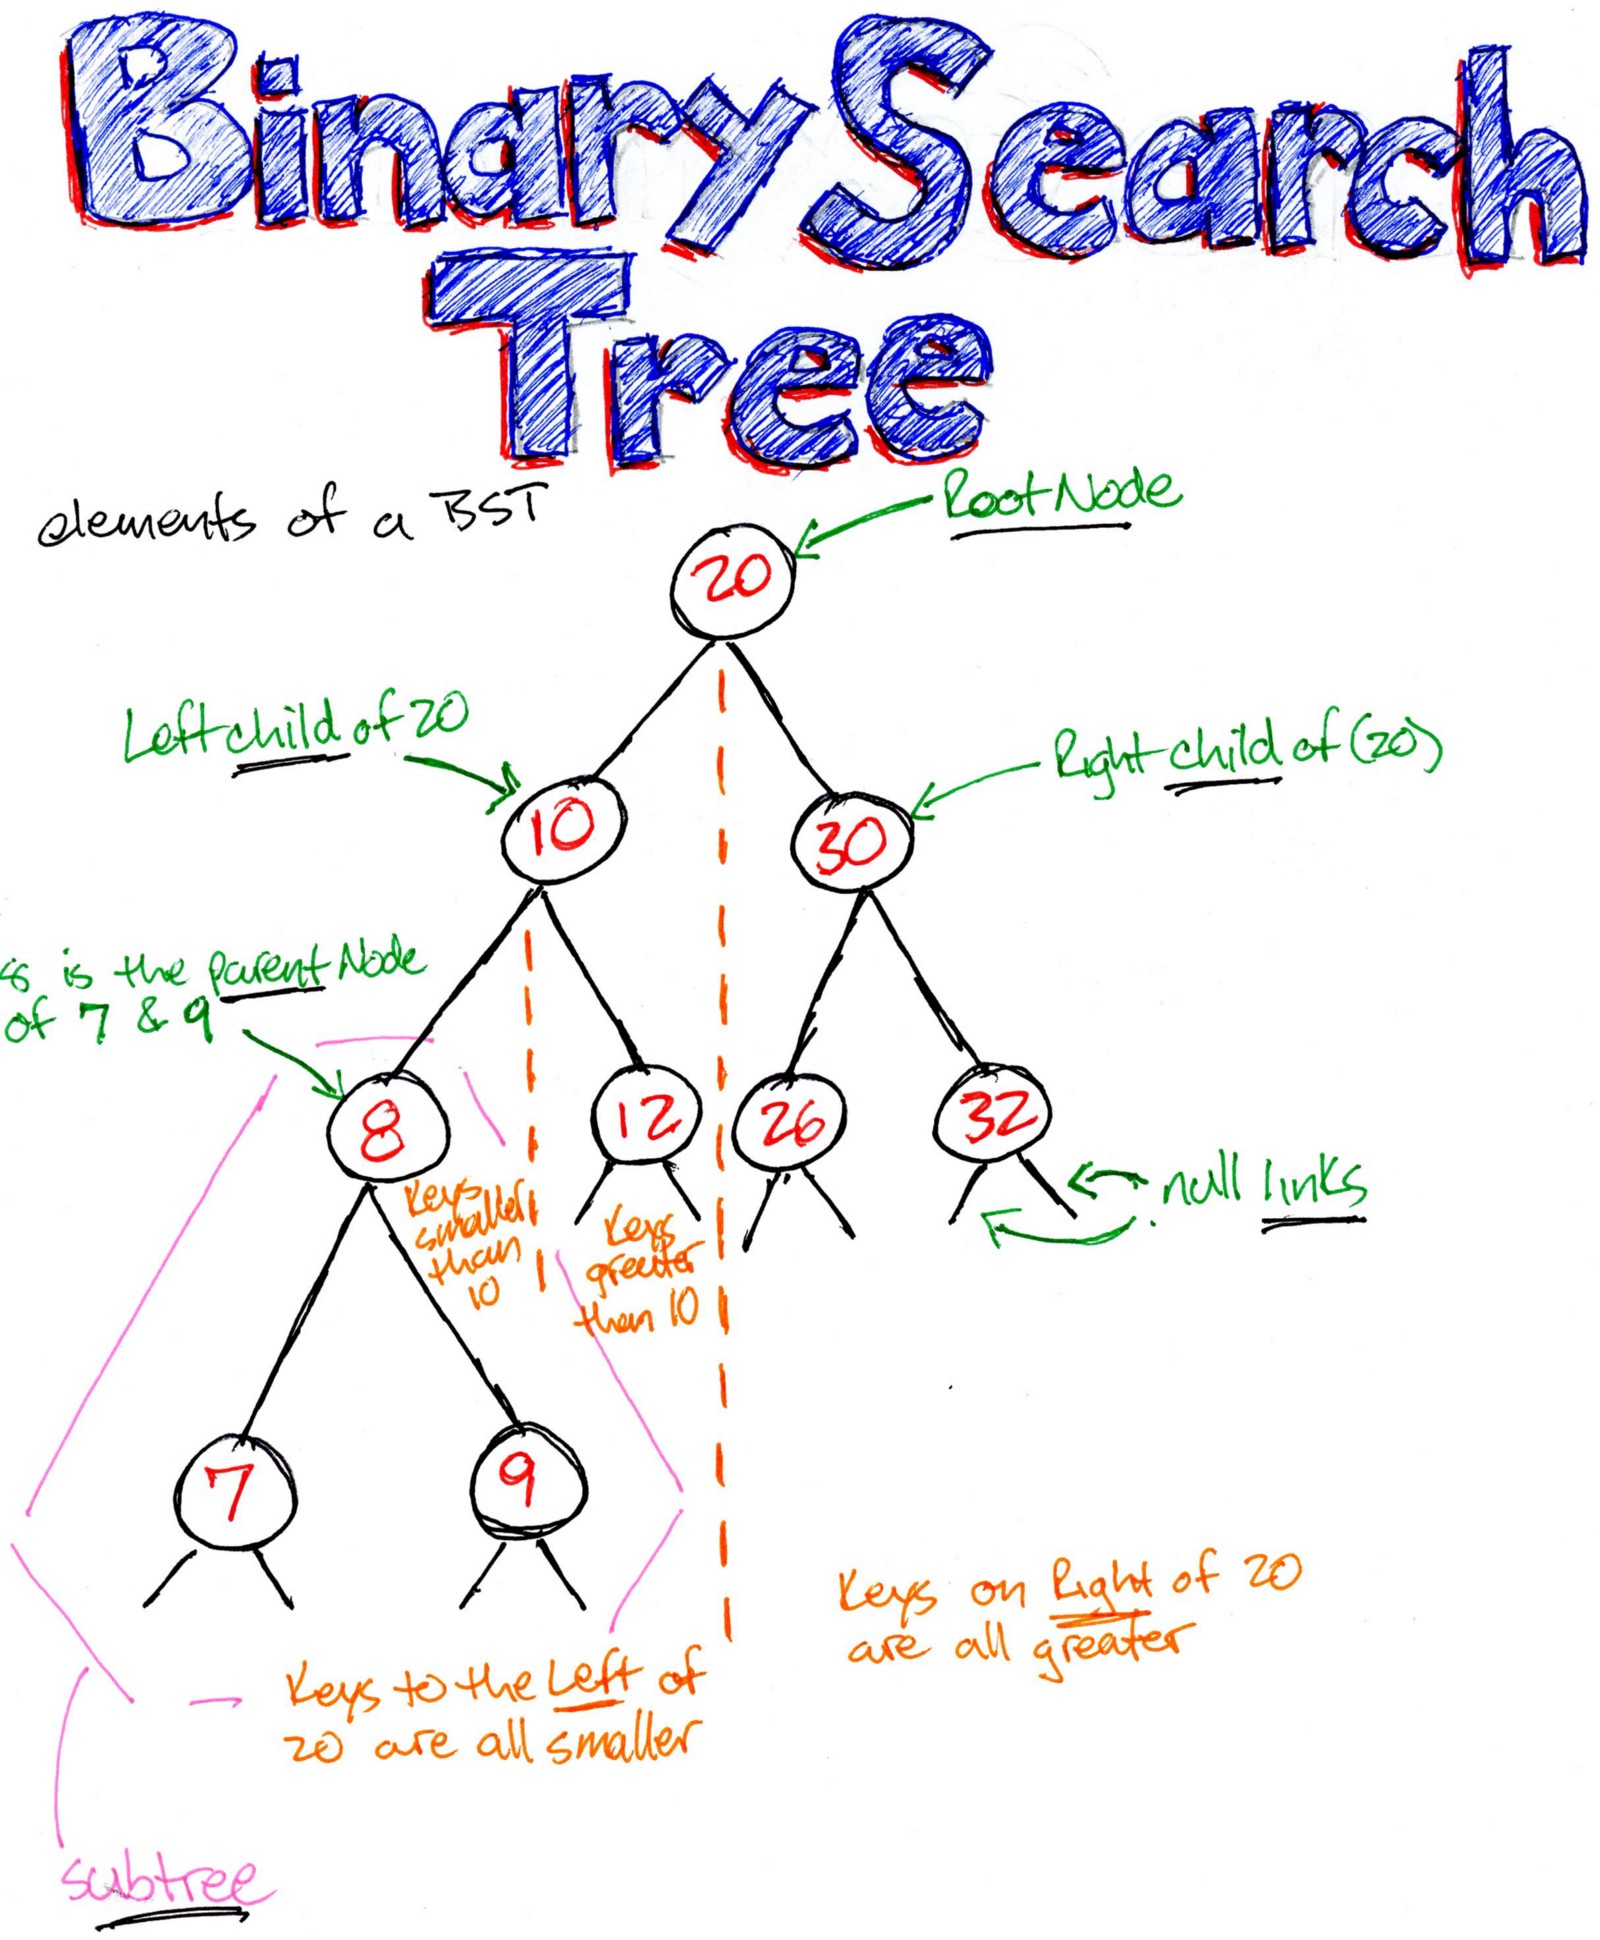 Binary Search
Tree
elements of a BST
Root Node
20
Left child of 20
Right child of (20)
10
30
8 is the parent Node
of 7 & 9
8
12
26
32
Keys
smaller
than
10
Keys
greater
than 10
null links
7
9
Keys on Right of 20
are all greater
Keys to the Left of
20 are all smaller
subtree